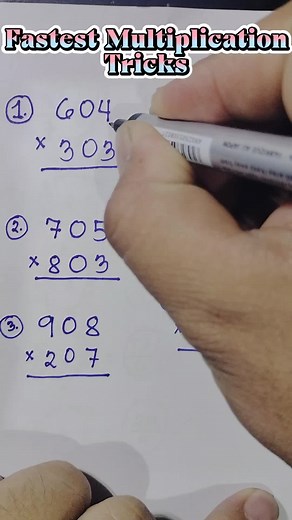 Fastest Multiplication
Tricks
1. 604
× 303
2. 705
× 803
3. 908
× 207